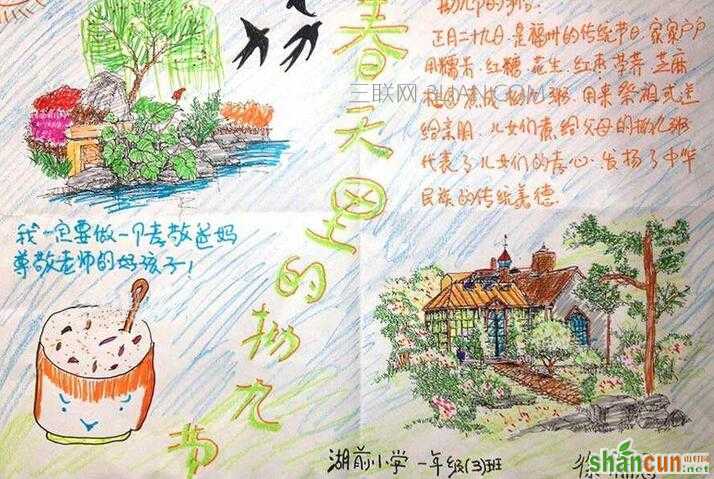 春天里的拗九节
拗九节的习俗.
正月二十九日.是福州的传统节日.家家户户
用糯米.红糖.花生.红枣.荸荠.芝麻
粥.用来祭祖或送
给亲朋.儿女们煮给父母的拗九粥
代表了儿女们的孝心.发扬了中华
民族的传统美德.
我一定要做一个孝敬爸妈
尊敬老师的好孩子!
湖前小学 一年级(3)班
徐
三联网 3LIAN.COM
shancun
山村网
.net